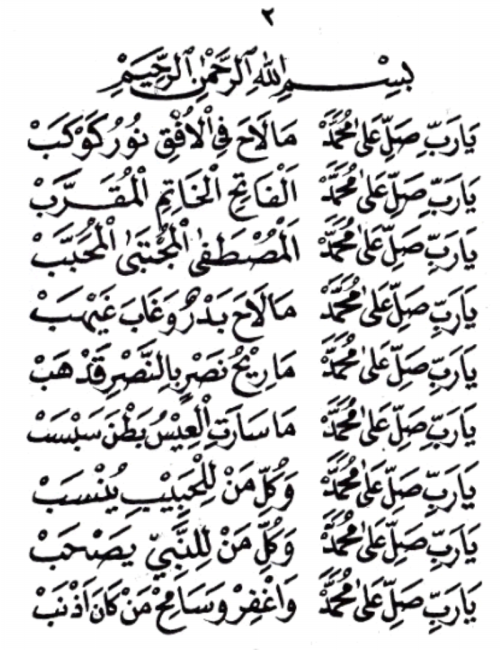 ٢
بِسْمِ اللهِ الرَّحْمٰنِ الرَّحِيْمِ
يَارَبِّ صَلِّ عَلٰى مُحَمَّدْ مَالَاحَ فِي الْاُفْقِ نُوْرُ كَوْكَبْ
يَارَبِّ صَلِّ عَلٰى مُحَمَّدْ اَلْفَاتِحِ الْخَاتِمِ الْمُقَرَّبْ
يَارَبِّ صَلِّ عَلٰى مُحَمَّدْ اَلْمُصْطَفٰى الْمُجْتَبٰى الْمُحَبَّبْ
يَارَبِّ صَلِّ عَلٰى مُحَمَّدْ مَالَاحَ بَدْرٌ وَغَابَ غَيْهَبْ
يَارَبِّ صَلِّ عَلٰى مُحَمَّدْ مَارِيْحُ نَصْرٍ بِالنَّصْرِ قَدْهَبْ
يَارَبِّ صَلِّ عَلٰى مُحَمَّدْ مَاسَارَتِ الْعِيْسُ بَطْنَ سَبْسَبْ
يَارَبِّ صَلِّ عَلٰى مُحَمَّدْ وَكُلِّ مَنْ لِلْحَبِيْبِ يُنْسَبْ
يَارَبِّ صَلِّ عَلٰى مُحَمَّدْ وَكُلِّ مَنْ لِلنَّبِيِّ يَصْحَبْ
يَارَبِّ صَلِّ عَلٰى مُحَمَّدْ وَاغْفِرْ وَسَامِحْ مَنْ كَانَ اَذْنَبْ